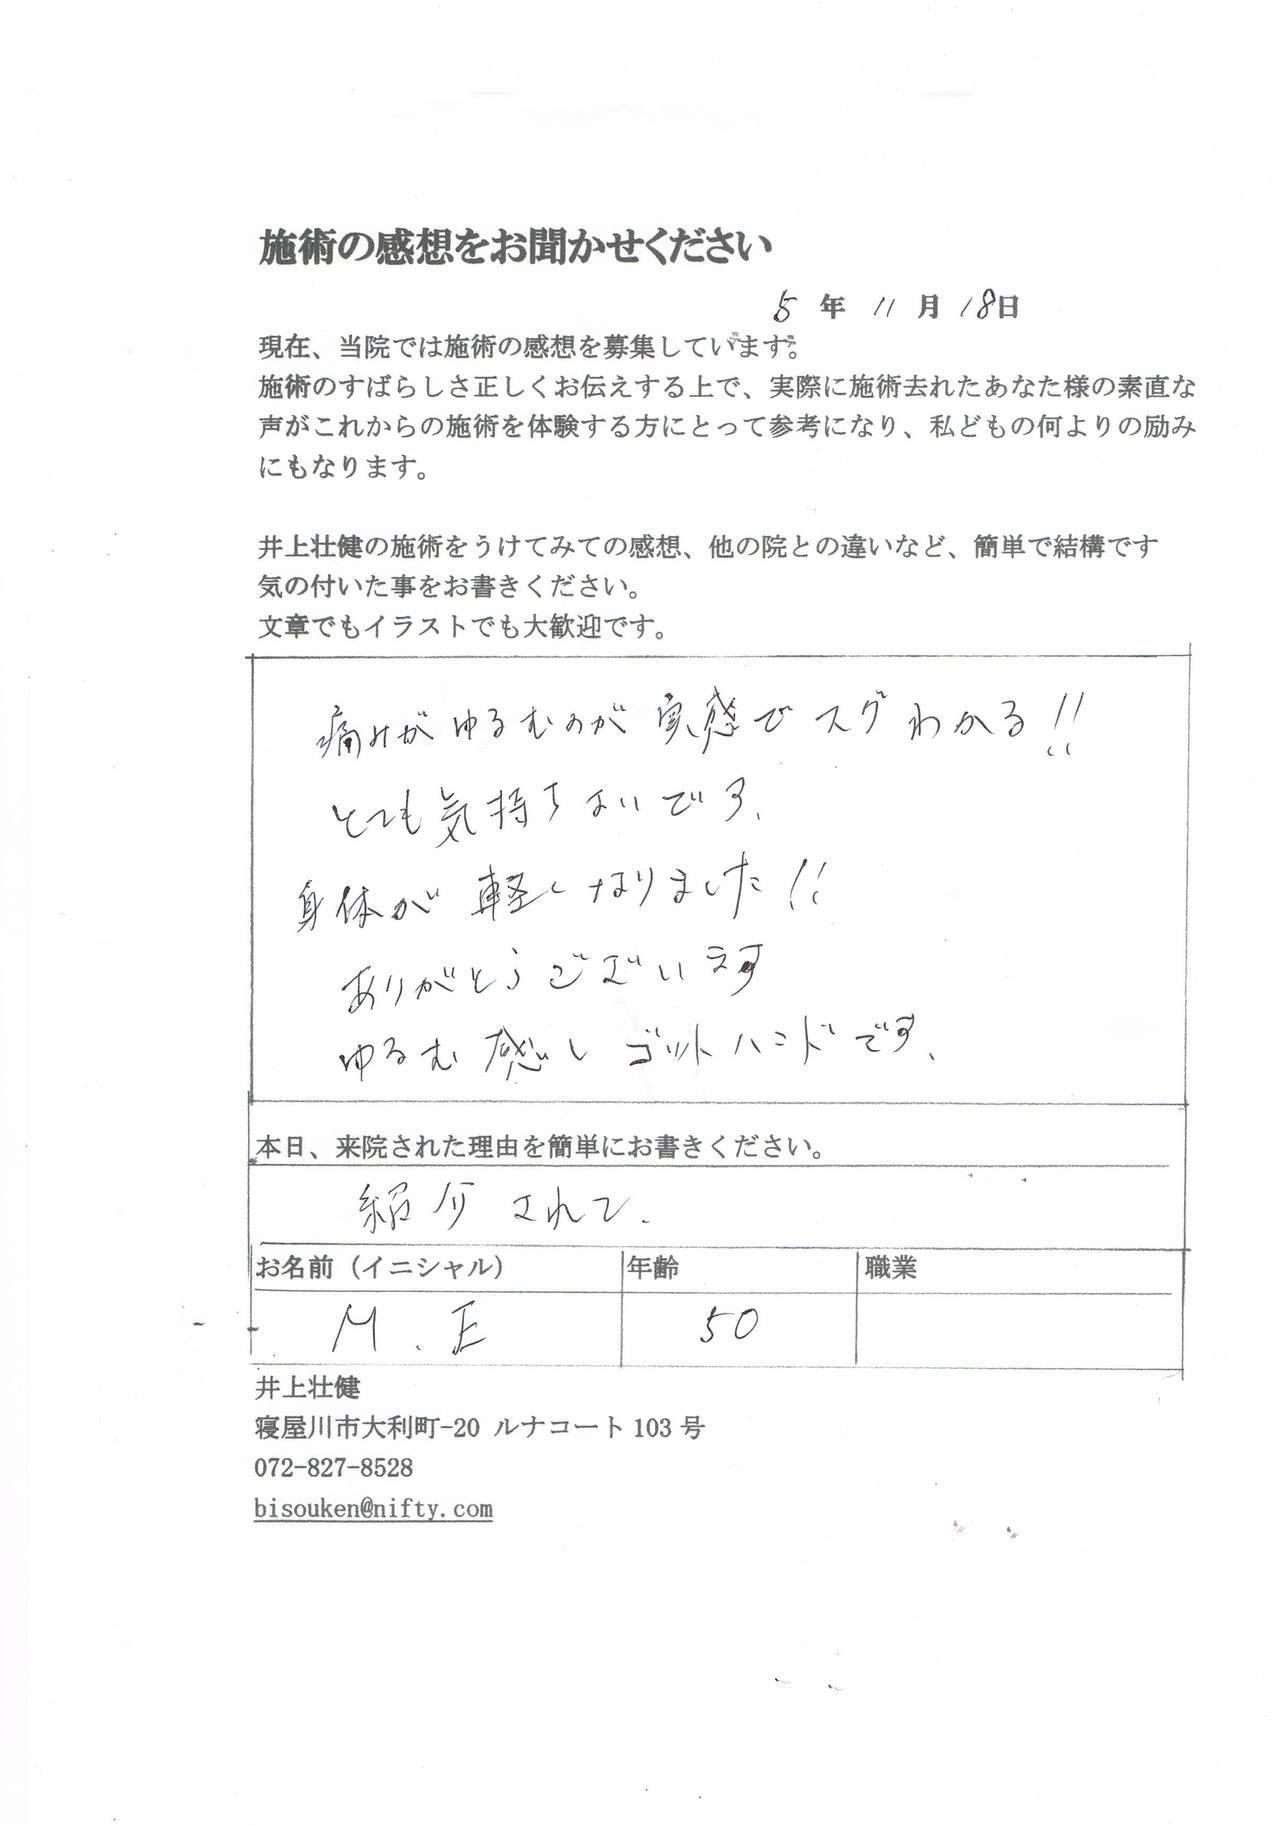 施術の感想をお聞かせください
5年11月18日
現在、当院では施術の感想を募集しています。
施術のすばらしさ正しくお伝えする上で、実際に施術去れたあなた様の素直な
声がこれからの施術を体験する方にとって参考になり、私どもの何よりの励み
にもなります。
井上壮健の施術をうけてみての感想、他の院との違いなど、簡単で結構です
気の付いた事をお書きください。
文章でもイラストでも大歓迎です。
痛みがゆるむのが実感でスグわかる!!
とても気持ちよいです、
身体が軽くなりました!!
ありがとうございます
ゆるむ感じゴットハンドです、
本日、来院された理由を簡単にお書きください。
紹介されて.
お名前（イニシャル） 年齢 職業
M.E 50
井上壮健
寝屋川市大利町-20 ルナコート 103 号
072-827-8528
bisouken@nifty.com